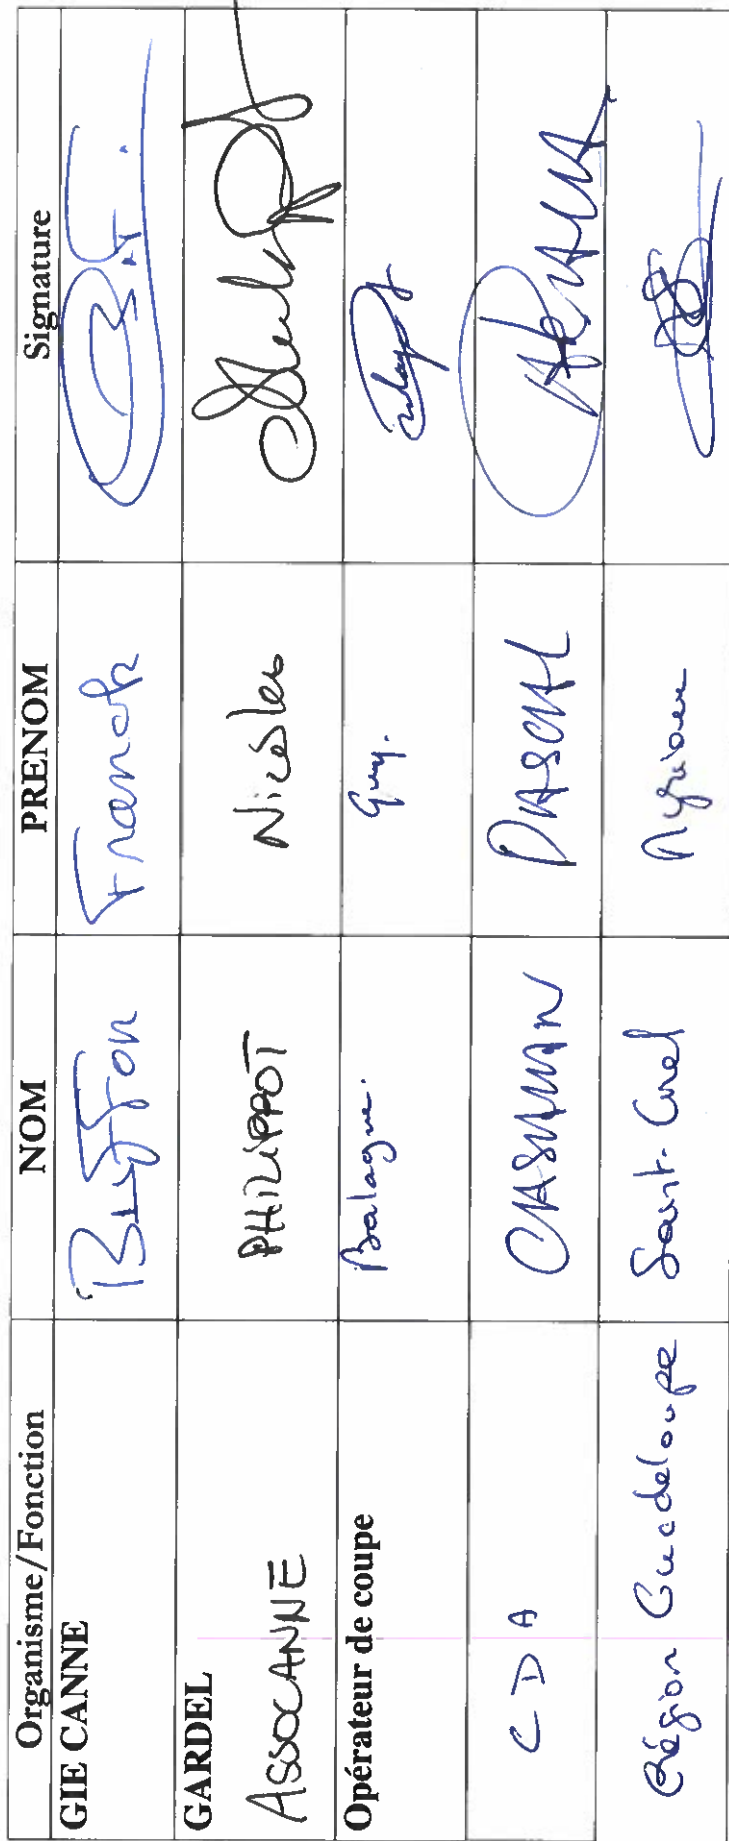 Organisme/Fonction NOM PRENOM Signature
GIE CANNE Buffon Franck
GARDEL
ASSOCANNE PHILIPPOT Nicolas
Opérateur de coupe Balague. Guy.
CDA PASCAL
Région Guadeloupe Saint-